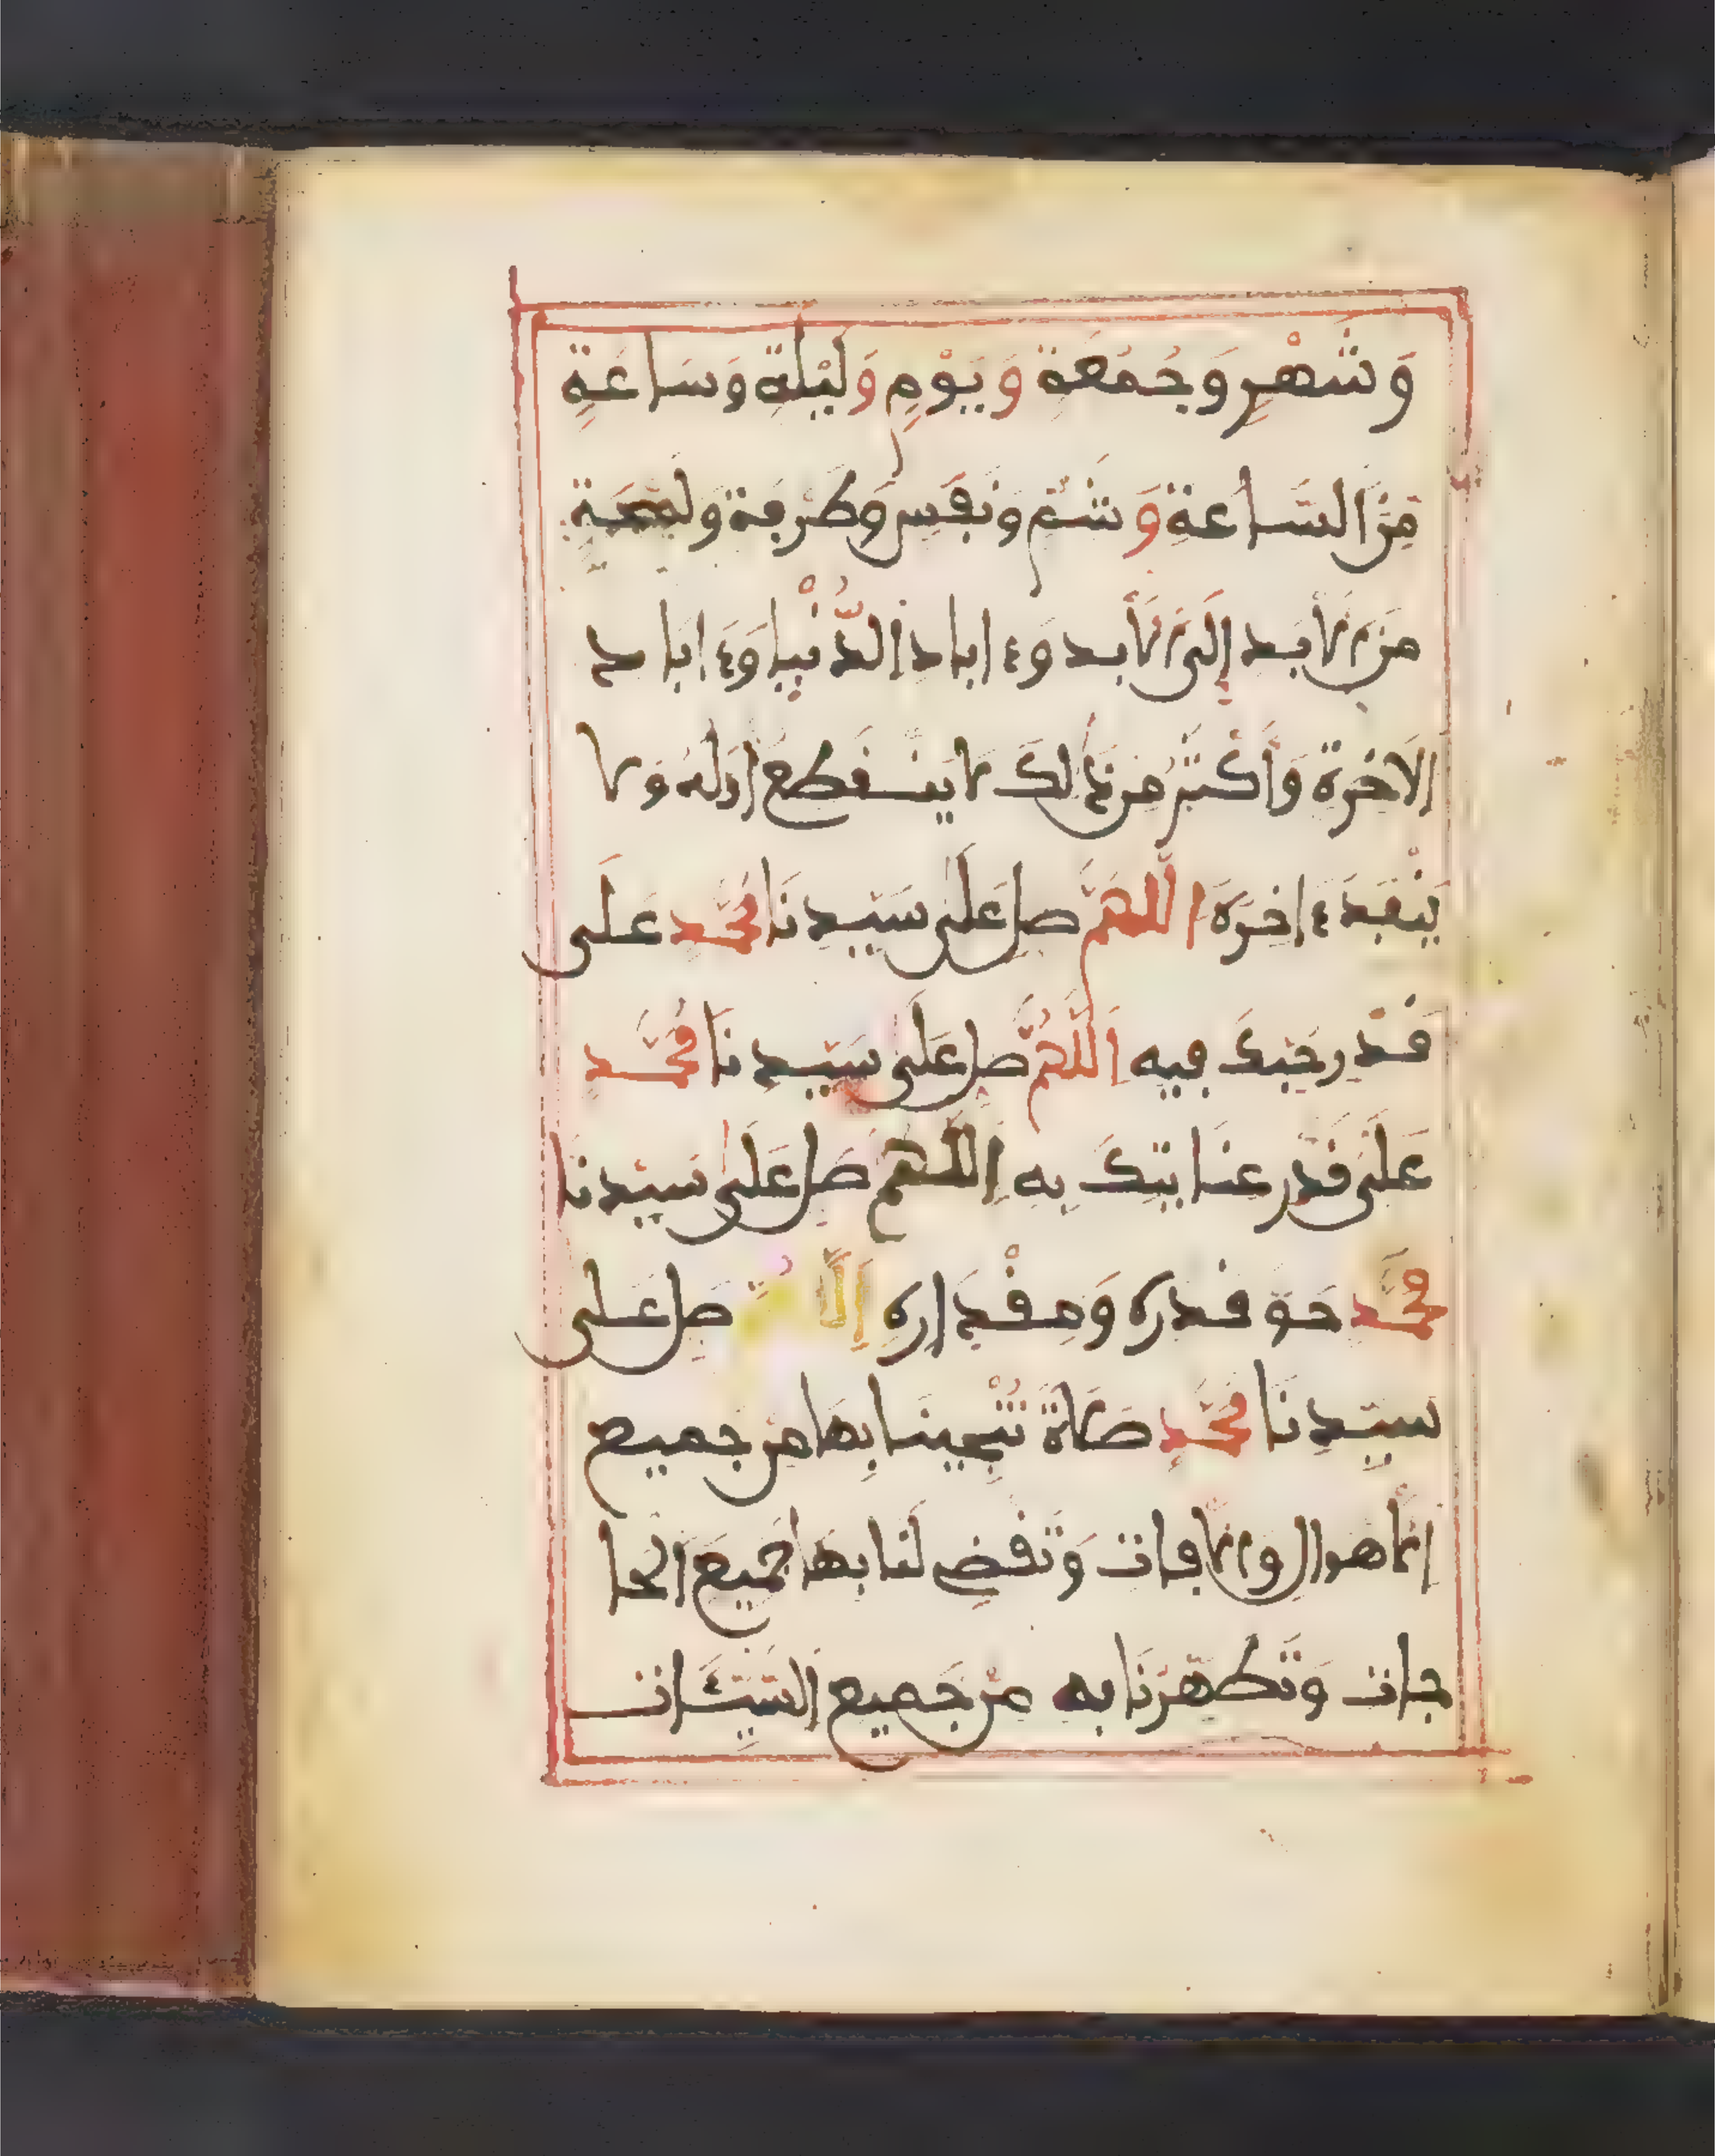 وَشَهْرٍ وَجُمُعَةٍ وَيَوْمٍ وَلَيْلَةٍ وَسَاعَةٍ
مِنَ السَّاعَةِ وَشَمٍّ وَنَفَسٍ وَطَرْفَةٍ وَلَمْحَةٍ
مِنَ الأَبَدِ إِلَى الأَبَدِ وَءَابَادِ الدُّنْيَا وَءَابَادِ
الآخِرَةِ وَأَكْثَرَ مِن ذَالِكَ لَا يَنْقَطِعُ أَوَّلُهُ وَلَا
يَنْفَدُ ءَاخِرُهُ اللَّهُمَّ صَلِّ عَلَى سَيِّدِنَا مُحَمَّدٍ عَلَى
قَدْرِ حُبِّكَ فِيهِ اَللَّهُمَّ صَلِّ عَلَى سَيِّدِنَا مُحَمَّدٍ
عَلَى قَدْرِ عِنَايَتِكَ بِهِ اَللَّهُمَّ صَلِّ عَلَى سَيِّدِنَا
مُحَمَّدٍ حَقَّ قَدْرِهِ وَمِقْدَارِهِ صَلِّ عَلَى
سَيِّدِنَا مُحَمَّدٍ صَلَاةً تُنْجِينَا بِهَا مِنْ جَمِيعِ
الأَهْوَالِ وَالأَفَاتِ وَتَقْضِي لَنَا بِهَا جَمِيعَ الْحَا
جَاتِ وَتُطَهِّرُنَا بِهِ مِنْ جَمِيعِ السَّيِّئَاتِ